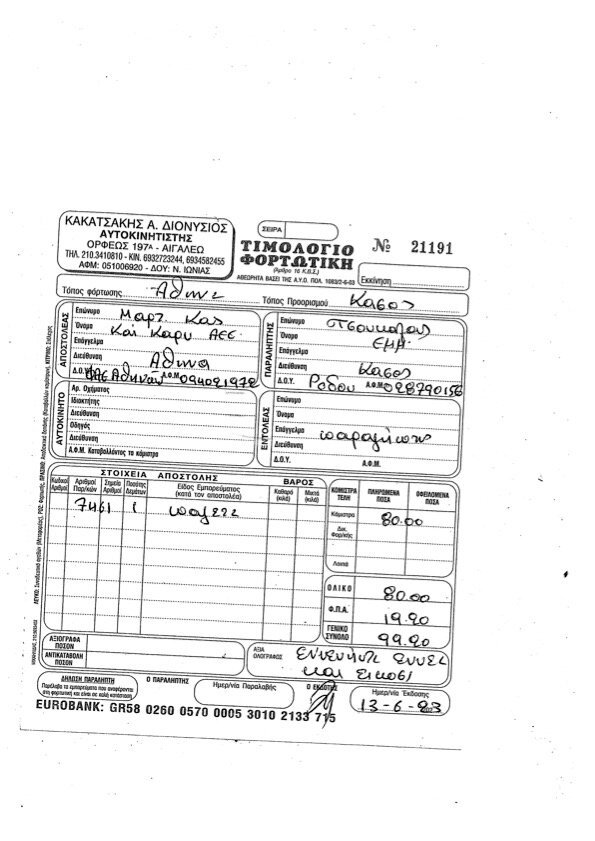 ΚΑΚΑΤΣΑΚΗΣ Α. ΔΙΟΝΥΣΙΟΣ
ΑΥΤΟΚΙΝΗΤΙΣΤΗΣ
ΟΡΦΕΩΣ 197Α - ΑΙΓΑΛΕΩ
ΤΗΛ. 210.3410810 - ΚΙΝ. 6932723244, 6934582455
ΑΦΜ: 051006920 - ΔΟΥ: Ν. ΙΩΝΙΑΣ
ΣΕΙΡΑ
ΤΙΜΟΛΟΓΙΟ
ΦΟΡΤΩΤΙΚΗ
(Άρθρο 16 Κ.Β.Σ.)
ΑΘΕΩΡΗΤΑ ΒΑΣΕΙ ΤΗΣ Α.Υ.Ο. ΠΟΛ. 1083/2-6-03
№ 21191
Εκκίνηση
Τόπος φόρτωσης Αθηνα Τόπος Προορισμού Κασος
ΑΠΟΣΤΟΛΕΑΣ
Επώνυμο Μαρτ. Κας
Όνομα και Καρυ ΑΕΕ
Επάγγελμα
Διεύθυνση Αθηνα
Δ.Ο.Υ. ΦΑΕ Αθηνων Α.Φ.Μ. 094021972
ΠΑΡΑΛΗΠΤΗΣ
Επώνυμο
Όνομα ΕΜΜ.
Επάγγελμα
Διεύθυνση Κασος
Δ.Ο.Υ. Ροδου Α.Φ.Μ. 028790156
ΑΥΤΟΚΙΝΗΤΟ
Αρ. Οχήματος
Ιδιοκτήτης
Διεύθυνση
Οδηγός
Διεύθυνση
Α.Φ.Μ. Καταβάλλοντος τα κόμιστρα
ΕΝΤΟΛΕΑΣ
Επώνυμο
Όνομα
Επάγγελμα παραληπτης
Διεύθυνση
Δ.Ο.Υ. Α.Φ.Μ.
ΣΤΟΙΧΕΙΑ ΑΠΟΣΤΟΛΗΣ ΒΑΡΟΣ
Κωδικοί Αριθμοί
Αριθμοί Παρ/κών
Σημεία Αριθμοί
Ποσότης Δεμάτων
Είδος Εμπορεύματος
(κατά τον αποστολέα)
Καθαρό (κιλά)
Μικτό (κιλά)
ΚΟΜΙΣΤΡΑ ΤΕΛΗ
ΠΛΗΡΩΜΕΝΑ ΠΟΣΑ
ΟΦΕΙΛΟΜΕΝΑ ΠΟΣΑ
7461 1
Κόμιστρα 80.00
Δικ. Φορ/κής
Λοιπά
ΟΛΙΚΟ 80.00
Φ.Π.Α. 19.20
ΓΕΝΙΚΟ ΣΥΝΟΛΟ 99.20
ΑΞΙΟΓΡΑΦΑ ΠΟΣΟΝ
ΑΝΤΙΚΑΤΑΒΟΛΗ ΠΟΣΟΝ
ΑΞΙΑ ΟΛΟΓΡΑΦΩΣ εννενηντα εννεα
και εικοσι
ΔΗΛΩΣΗ ΠΑΡΑΛΗΠΤΗ
Παρέλαβα τα εμπορεύματα που αναφέρονται
στη φορτωτική και είναι σε καλή κατάσταση.
Ο ΠΑΡΑΛΗΠΤΗΣ
Ημερ/νία Παραλαβής
Ο ΕΚΔΟΤΗΣ
Ημερ/νία Έκδοσης
13-6-23
EUROBANK: GR58 0260 0570 0005 3010 2133 715